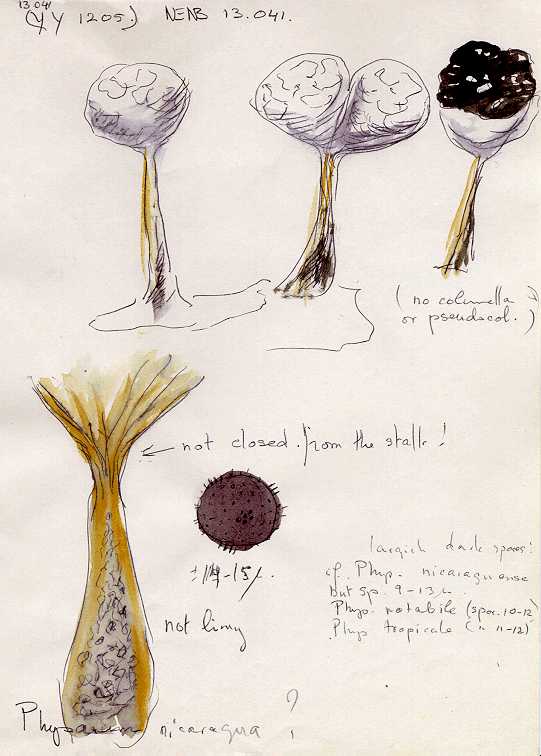 13.041
(YY 1205.) NENB 13.041.
(no columella
or pseudocol.)
not closed from the stalk!
largish dark spores!
cf. Phys. nicaraguense
but sp. 9-13µ
Phys. notabile (spor. 10-12
Phys tropicale (" 11-12)
14-15µ.
not limy
Physarum nicaragua ?